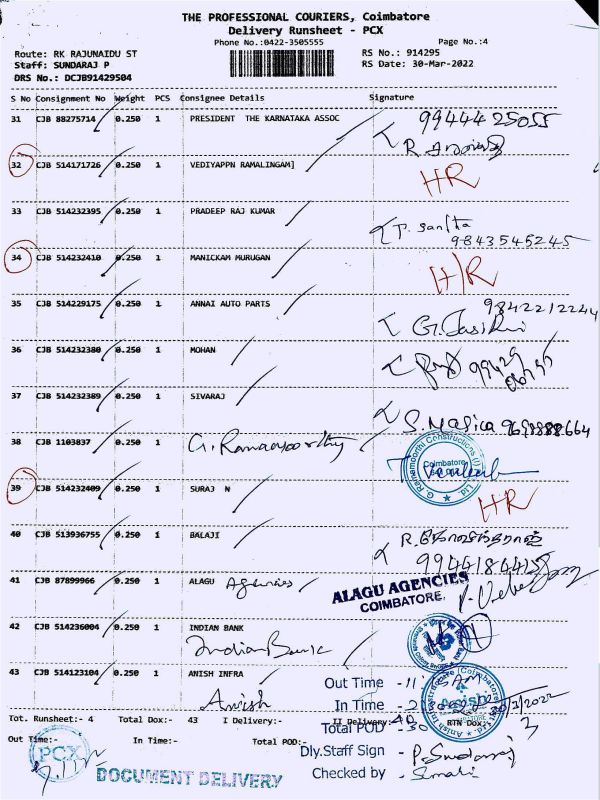 THE PROFESSIONAL COURIERS, Coimbatore
Delivery Runsheet - PCX
Phone No.:0422-3505555 Page No.:4
Route: RK RAJUNAIDU ST RS No.: 914295
Staff: SUNDARAJ P RS Date: 30-Mar-2022
DRS No.: DCJB91429504
S No Consignment No Weight PCS Consignee Details Signature
31 CJB 88275714 0.250 1 PRESIDENT THE KARNATAKA ASSOC 99444 25055
R
32 CJB 514171726 0.250 1 VEDIYAPPN RAMALINGAM] HR
33 CJB 514232395 0.250 1 PRADEEP RAJ KUMAR P. Santha
9843545245
34 CJB 514232410 0.250 1 MANICKAM MURUGAN HR
35 CJB 514229175 0.250 1 ANNAI AUTO PARTS 9842212244
G.
36 CJB 514232380 0.250 1 MOHAN 99429
37 CJB 514232389 0.250 1 SIVARAJ S.
38 CJB 1103837 0.250 1 G. Ramamoorthy
G Ramamoorthi Constructions (I) Ltd.
Coimbatore
39 CJB 514232409 0.250 1 SURAJ N HR
40 CJB 513936755 0.250 1 BALAJI R.
41 CJB 87899966 0.250 1 ALAGU Agencies ALAGU AGENCIES
COIMBATORE.
42 CJB 514236004 0.250 1 INDIAN BANK
Indian Bank
43 CJB 514123104 0.250 1 ANISH INFRA
Anish
Out Time - 11
In Time - 2
Tot. Runsheet:- 4 Total Dox:- 43 I Delivery:- II Delivery:- 40 RTN Dox:- 3
Total POD - 30
Out Time:- In Time:- Total POD:-
PCX
Dly.Staff Sign - P. Sundarraj
Checked by - Sumathi
DOCUMENT DELIVERY